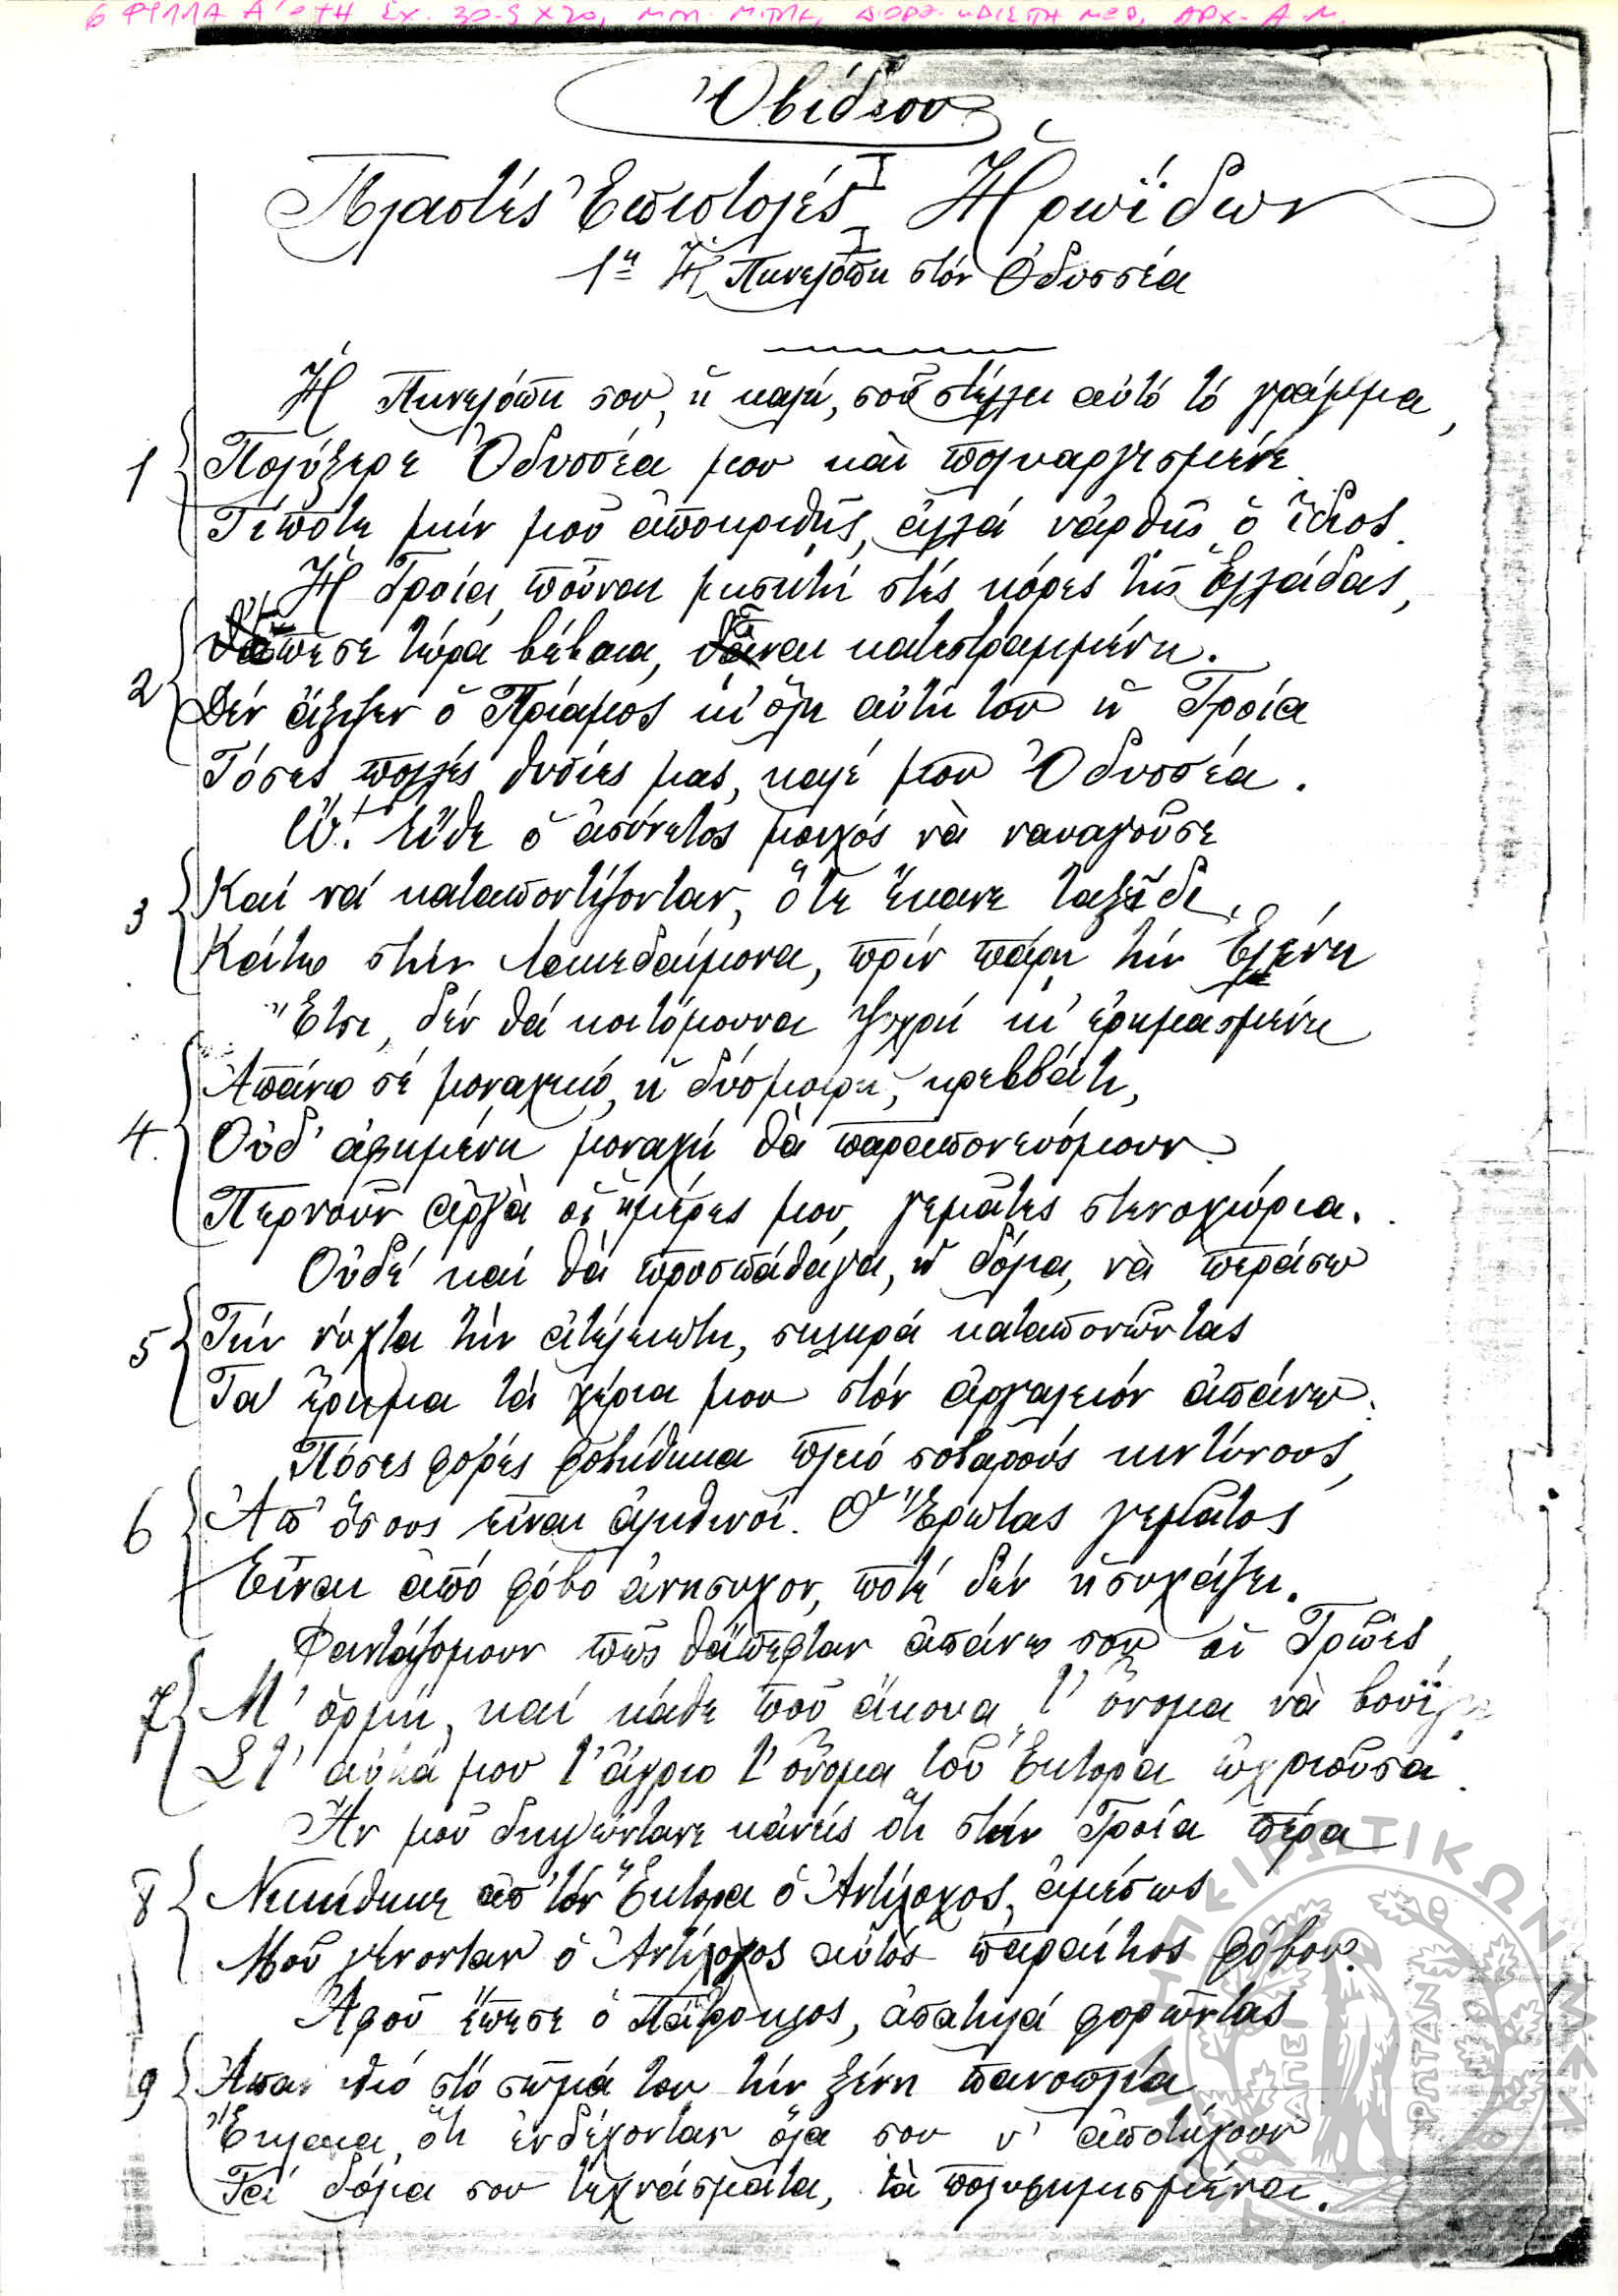 6 ΦΥΛΛΑ Α' ΟΨΗ ΣΧ. 30.5 Χ 20, ΜΠΛΕ, ΑΡΧ. Α.Μ.
Ὀβίδιου
Πλαστές Ἐπιστολές Ἡρωΐδων
1η Ἡ Πηνελόπη στόν Ὀδυσσέα
Ἡ Πηνελόπη σου, ἡ καλή, σοῦ στέλλει αὐτό τό γράμμα,
1 Πολύξερε Ὀδυσσέα μου καὶ πολυαργησμένε.
Τίποτε μήν μοῦ ἀποκριθῇς, ἀλλά νάρθῃς ὁ ἴδιος.
Ἡ Τροία, ποὖναι μισητή στές κόρες τῆς Ἑλλάδας,
2 πεσε τώρα βέβαια, ναι κατεστραμμένη.
Δέν ἄξιζεν ὁ Πρίαμος κι' ὅλη αὐτή του ἡ Τροία
Τόσες πολλές θυσίες μας, καλέ μου Ὀδυσσέα.
Ὤ! Εἴθε ὁ ἀσύνετος μοιχός νὰ ναυαγοῦσε
3 Καί νά καταποντίζονταν, ὅτε ἔκανε ταξεῖδι,
Κάτω στήν Λακεδαίμονα, πρίν πάρῃ τήν Ἑλένη
Ἔτσι, δέν θά κοιτόμουνα ψυχρή κι' ἐρημασμένη
Ἀπάνω σέ μοναχικό, ἡ δύσμοιρη, κρεββάτι,
4. Οὐδ' ἀφημένη μοναχή θὰ παραπονευόμουν.
Περνοῦν ἀργὰ οἱ ἡμέρες μου, γεμᾶτες στενοχώρια.
Οὐδέ καί θά προσπάθαγα, ἡ δόλια, νὰ περάσω
5 Τήν νύχτα τήν ἀτέλειωτη, σκληρά καταπονῶντας
Τα ἔρημα τά χέρια μου στόν ἀργαλειόν ἀπάνω.
Πόσες φορές φοβήθηκα πλειό σοβαρούς κινδύνους,
6 Ἀπ' ὅσους εἶναι ἀληθινοί. Ὁ Ἔρωτας γεμᾶτος
Εἶναι ἀπό φόβο ἀνήσυχον, ποτέ δέν ἡσυχάζει.
Φαντάζομουν πῶς θἄπεφταν ἀπάνω σου οἱ Τρῶες
7 Μ' ὁρμή, καί κάθε ποῦ ἄκουα τ' ὄνομα νὰ βουΐζῃ
Στ' αὐτιά μου τ' ἄγριο τ' ὄνομα τοῦ Ἕκτορα ὠχριοῦσα.
Ἄν μοῦ διηγῶντανε κἀνείς ὅτι στήν Τροία πέρα
8 Νικήθηκε ἀπ' τόν Ἕκτορα ὁ Ἀντίλοχος, ἀμέσως
Μοῦ γένονταν ὁ Ἀντίλοχος αὐτὸς παραίτιος φόβου.
Ἀφοῦ ἔπεσε ὁ Πάτροκλος, ἀπατηλά φορῶντας
9 στό σῶμά του τήν ξένη πανοπλία
Ἔκλαια, ὅτι ἐνδέχονταν ὅλα σου ν' ἀποτύχουν
Τά δόλια σου τεχνάσματα, τὰ πολυφημισμένα.